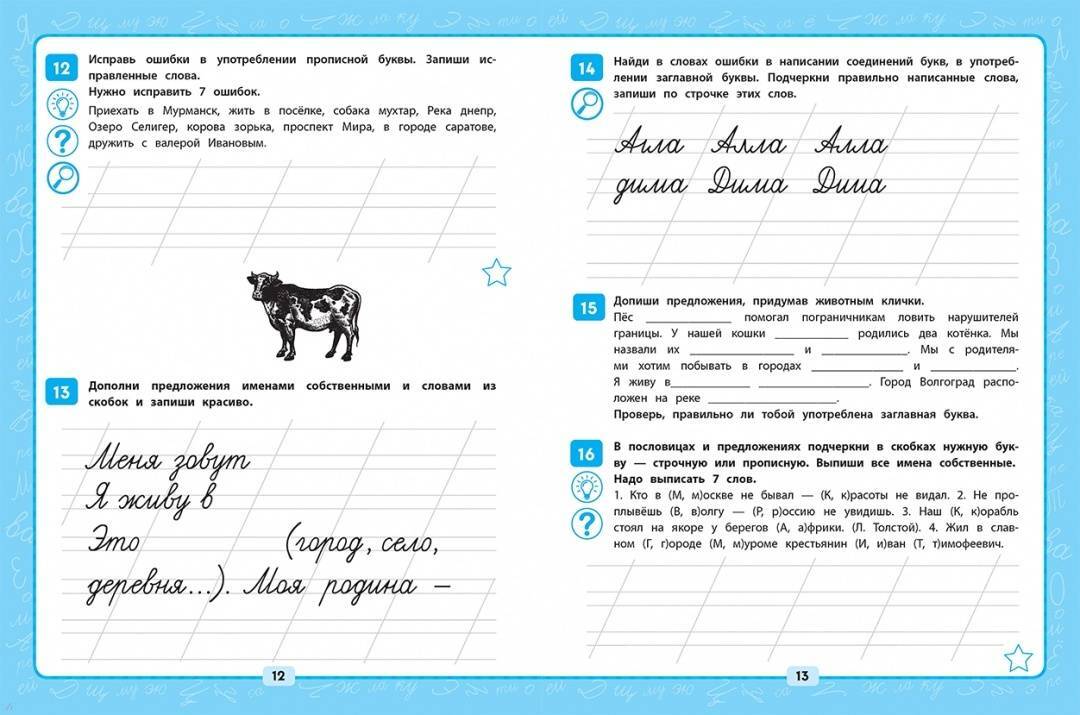 12
Исправь ошибки в употреблении прописной буквы. Запиши ис-
правленные слова.
Нужно исправить 7 ошибок.
Приехать в Мурманск, жить в посёлке, собака мухтар, Река днепр,
Озеро Селигер, корова зорька, проспект Мира, в городе саратове,
дружить с валерой Ивановым.
13
Дополни предложения именами собственными и словами из
скобок и запиши красиво.
Меня зовут
Я живу в
Это (город, село,
деревня...). Моя родина –
12
14
Найди в словах ошибки в написании соединений букв, в употреб-
лении заглавной буквы. Подчеркни правильно написанные слова,
запиши по строчке этих слов.
Алла Алла
дима Дима
15
Допиши предложения, придумав животным клички.
Пёс ______________ помогал пограничникам ловить нарушителей
границы. У нашей кошки ____________ родились два котёнка. Мы
назвали их _________________ и ______________. Мы с родителя-
ми хотим побывать в городах _______________ и ______________.
Я живу в_____________ __________________. Город Волгоград распо-
ложен на реке _____________________.
Проверь, правильно ли тобой употреблена заглавная буква.
16
В пословицах и предложениях подчеркни в скобках нужную бук-
ву — строчную или прописную. Выпиши все имена собственные.
Надо выписать 7 слов.
1. Кто в (М, м)оскве не бывал — (К, к)расоты не видал. 2. Не про-
плывёшь (В, в)олгу — (Р, р)оссию не увидишь. 3. Наш (К, к)орабль
стоял на якоре у берегов (А, а)фрики. (Л. Толстой). 4. Жил в слав-
ном (Г, г)ороде (М, м)уроме крестьянин (И, и)ван (Т, т)имофеевич.
13